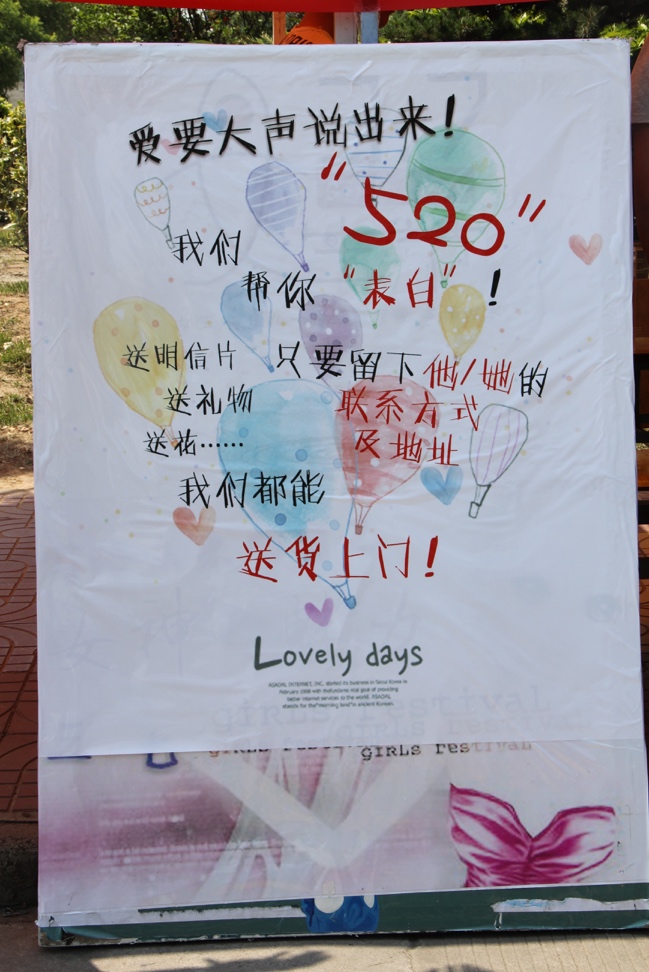 爱要大声说出来!
"520"
我们
帮你"表白"!
送明信片 只要留下他/她的
送礼物 联系方式
送祐…… 及地址
我们都能
送货上门!
Lovely days
ASADAL INTERNET, INC. started its business in Seoul Korea in
February 1998 with the fundamental goal of providing
better internet services to the world. ASADAL
stands for the "morning land" in ancient Korean.
GIRLS festival